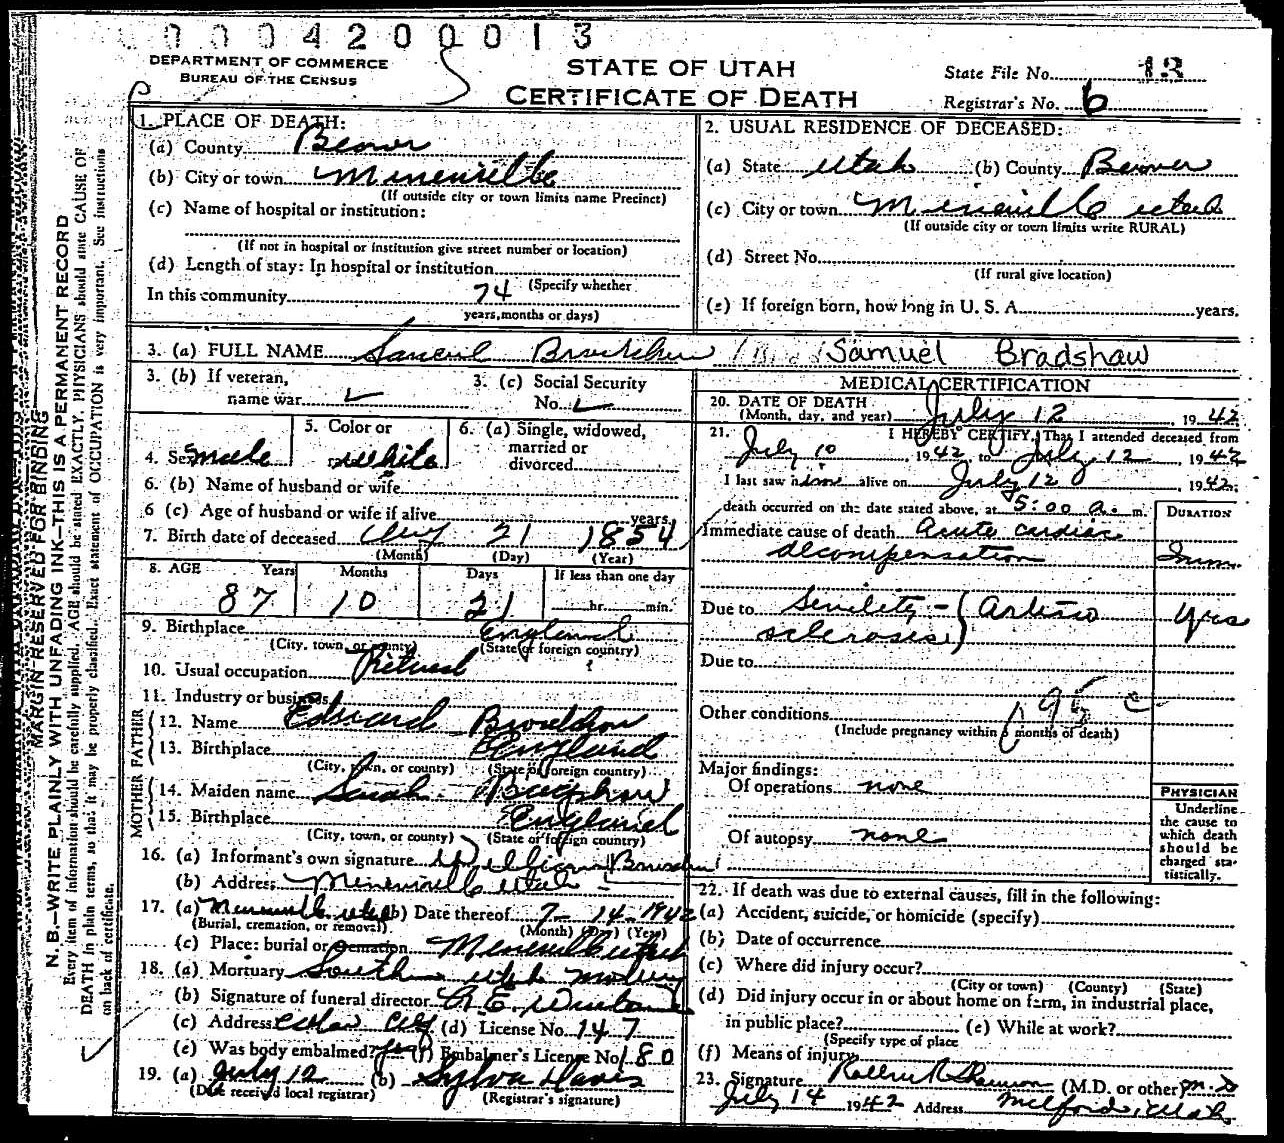 0004200013
DEPARTMENT OF COMMERCE
BUREAU OF THE CENSUS
STATE OF UTAH
CERTIFICATE OF DEATH
State File No. 13
Registrar's No. 6
MARGIN RESERVED FOR BINDING
N. B.—WRITE PLAINLY WITH UNFADING INK—THIS IS A PERMANENT RECORD
Every item of information should be carefully supplied. AGE should be stated EXACTLY. PHYSICIANS should state CAUSE OF
DEATH in plain terms, so that it may be properly classified. Exact statement of OCCUPATION is very important. See instructions
on back of certificate.
1. PLACE OF DEATH:
(a) County Beaver
(b) City or town Minersville
(If outside city or town limits name Precinct)
(c) Name of hospital or institution:
(If not in hospital or institution give street number or location)
(d) Length of stay: In hospital or institution
(Specify whether
In this community 74
years, months or days)
2. USUAL RESIDENCE OF DECEASED:
(a) State Utah (b) County Beaver
(c) City or town Minersville Utah
(If outside city or town limits write RURAL)
(d) Street No.
(If rural give location)
(e) If foreign born, how long in U. S. A. years.
3. (a) FULL NAME Samuel Bradshaw Samuel Bradshaw
3. (b) If veteran,
name war
3. (c) Social Security
No.
4. Sex male
5. Color or
race white
6. (a) Single, widowed,
married or
divorced
6. (b) Name of husband or wife
6 (c) Age of husband or wife if alive years
7. Birth date of deceased Aug 21 1854
(Month) (Day) (Year)
8. AGE Years Months Days If less than one day
87 10 21 hr. min.
9. Birthplace England
(City, town, or county) (State or foreign country)
10. Usual occupation Retired
11. Industry or business
FATHER
12. Name Edward Bradshaw
13. Birthplace England
(City, town, or county) (State or foreign country)
MOTHER
14. Maiden name Sarah
15. Birthplace England
(City, town, or county) (State or foreign country)
16. (a) Informant's own signature William Bradshaw
(b) Address Minersville Utah
17. (a) Minersville Utah (b) Date thereof 7-14-1942
(Burial, cremation, or removal) (Month) (Day) (Year)
(c) Place: burial or cremation Minersville Utah
18. (a) Mortuary South Utah
(b) Signature of funeral director
(c) Address Cedar City (d) License No. 147
(e) Was body embalmed? yes (f) Embalmer's License No. 180
19. (a) July 12 (b) Sylva Davis
(Date received local registrar) (Registrar's signature)
MEDICAL CERTIFICATION
20. DATE OF DEATH
(Month, day, and year) July 12 1942
21. I HEREBY CERTIFY, That I attended deceased from
July 10, 1942, to July 12, 1942
I last saw him alive on July 12 1942
death occurred on the date stated above, at 5:00 a. m.
DURATION
Immediate cause of death Acute cardiac
decompensation
Due to Senility - (Arterio
sclerosis) yrs
Due to
Other conditions
(Include pregnancy within 3 months of death)
95 c
Major findings:
Of operations none
Of autopsy none
PHYSICIAN
Underline
the cause to
which death
should be
charged sta-
tistically.
22. If death was due to external causes, fill in the following:
(a) Accident, suicide, or homicide (specify)
(b) Date of occurrence
(c) Where did injury occur?
(City or town) (County) (State)
(d) Did injury occur in or about home on farm, in industrial place,
in public place? (e) While at work?
(Specify type of place
(f) Means of injury
23. Signature (M.D. or other) M.D.
July 14 1942 Address Milford, Utah